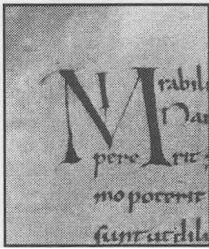 Mirabili
Nam
pere rit
mo poterit
sunt ut dili